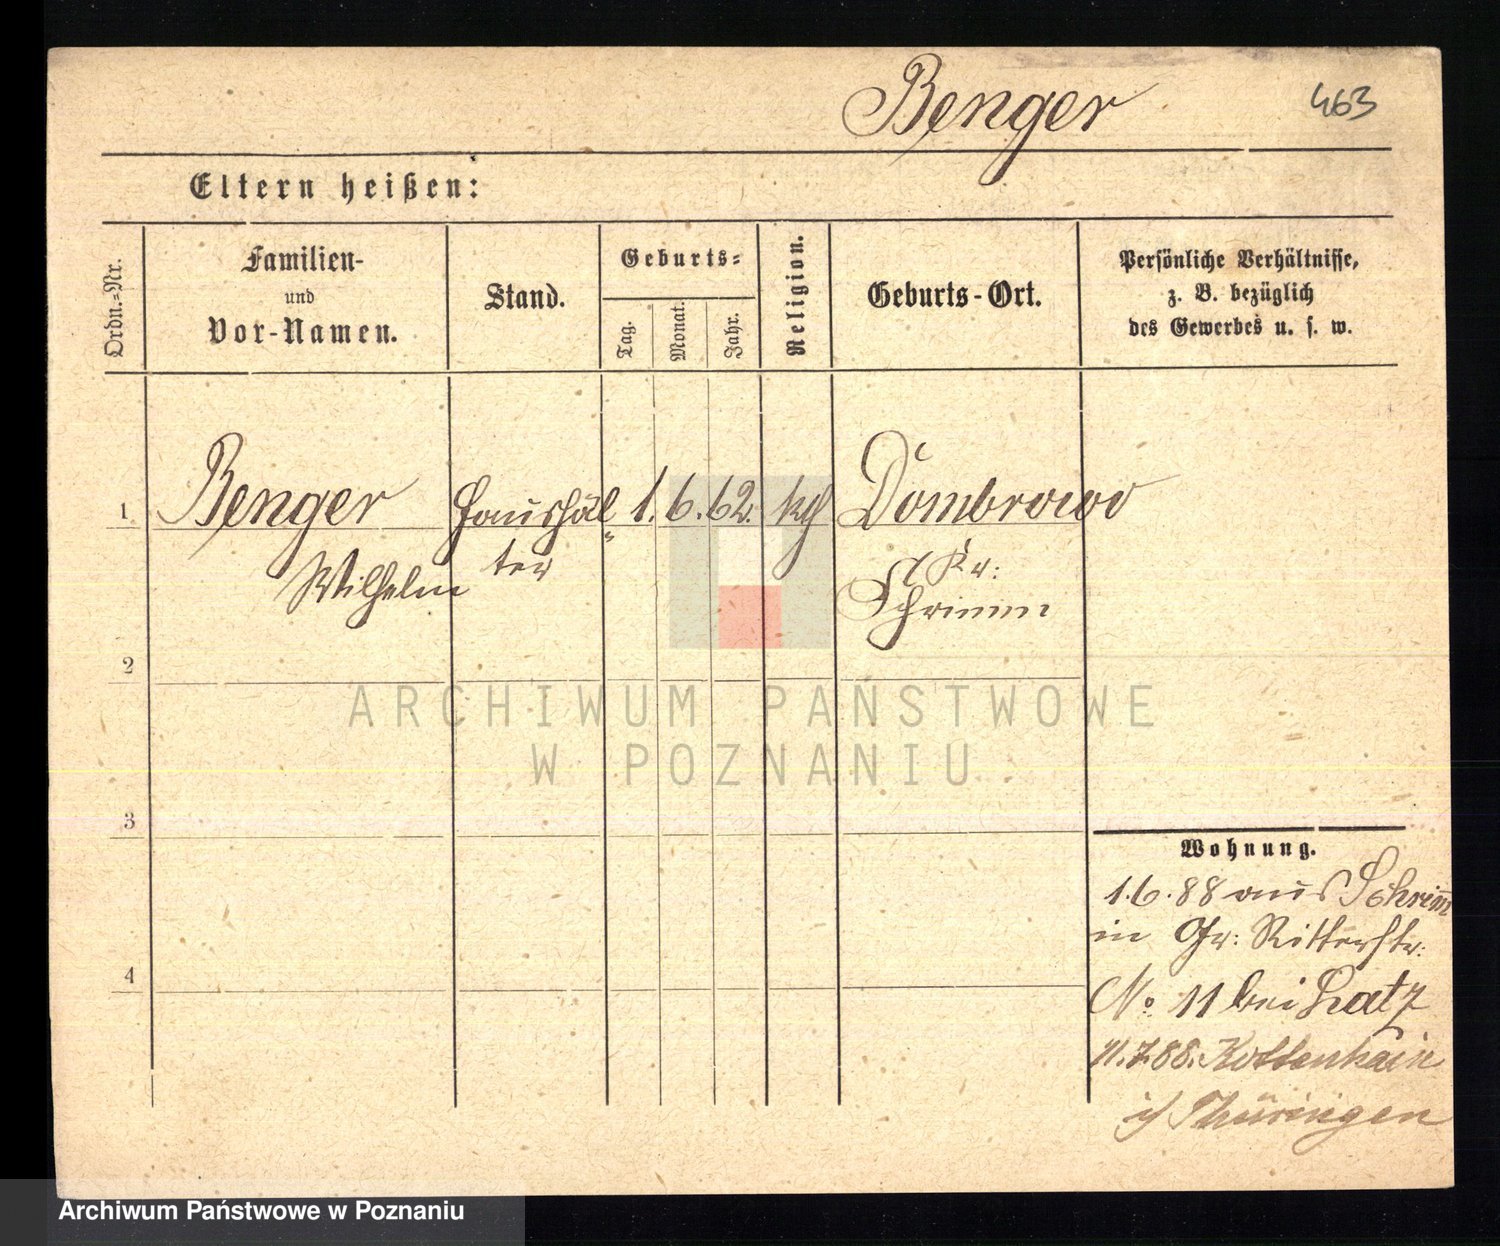 Benger
463
Eltern heißen:
Ordn.-Nr.
Familien-
und
Vor-Namen.
Stand.
Geburts-
Tag.
Monat.
Jahr.
Religion.
Geburts-Ort.
Persönliche Verhältnisse,
z. B. bezüglich
des Gewerbes u. s. w.
1 Benger Haushäl- 1. 6. 62. kth Dombrowo
Wilhelm ter Kr:
Schrimm
2
ARCHIWUM PAŃSTWOWE
W POZNANIU
3
Wohnung.
1.6.88 aus Schrim̅
in Gr: Ritterstr:
4
No 11 bei
11.7.88.
i/ Thüringen
Archiwum Państwowe w Poznaniu